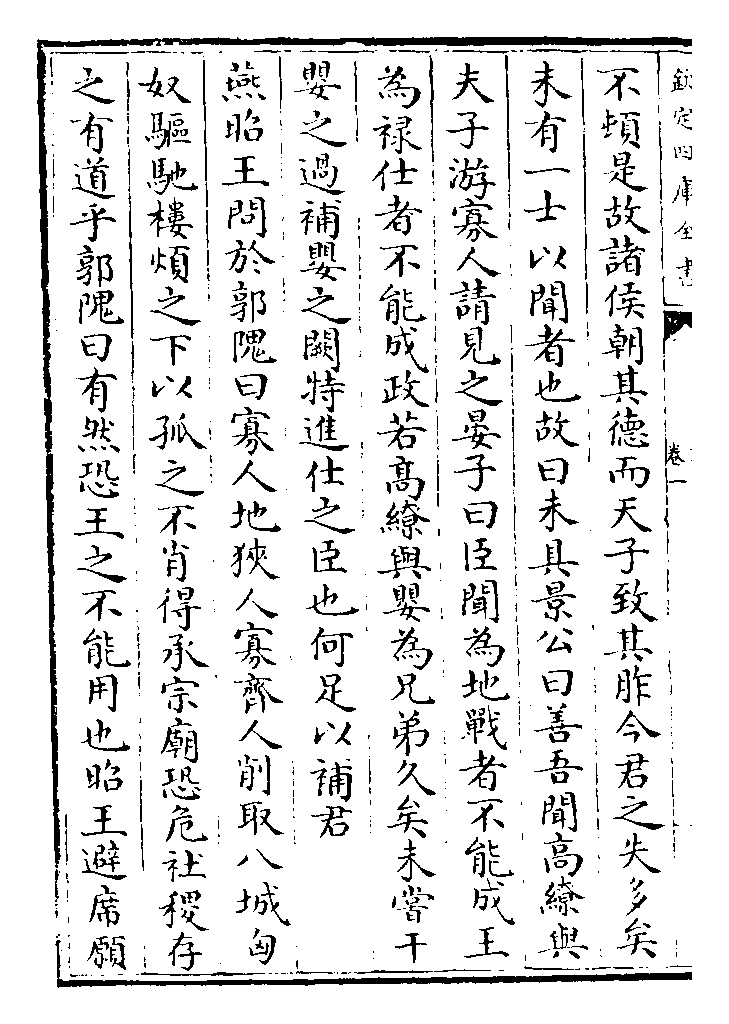 欽定四庫全書
卷一
不頓是故諸侯朝其德而天子致其胙今君之失多矣
未有一士以聞者也故曰未具景公曰善吾聞高繚與
夫子游寡人請見之晏子曰臣聞為地戰者不能成王
為禄仕者不能成政若高繚與嬰為兄弟久矣未嘗干
嬰之過補嬰之闕特進仕之臣也何足以補君
燕昭王問於郭隗曰寡人地狹人寡齊人削取八城匈
奴驅馳樓煩之下以孤之不肖得承宗廟恐危社稷存
之有道乎郭隗曰有然恐王之不能用也昭王避席願